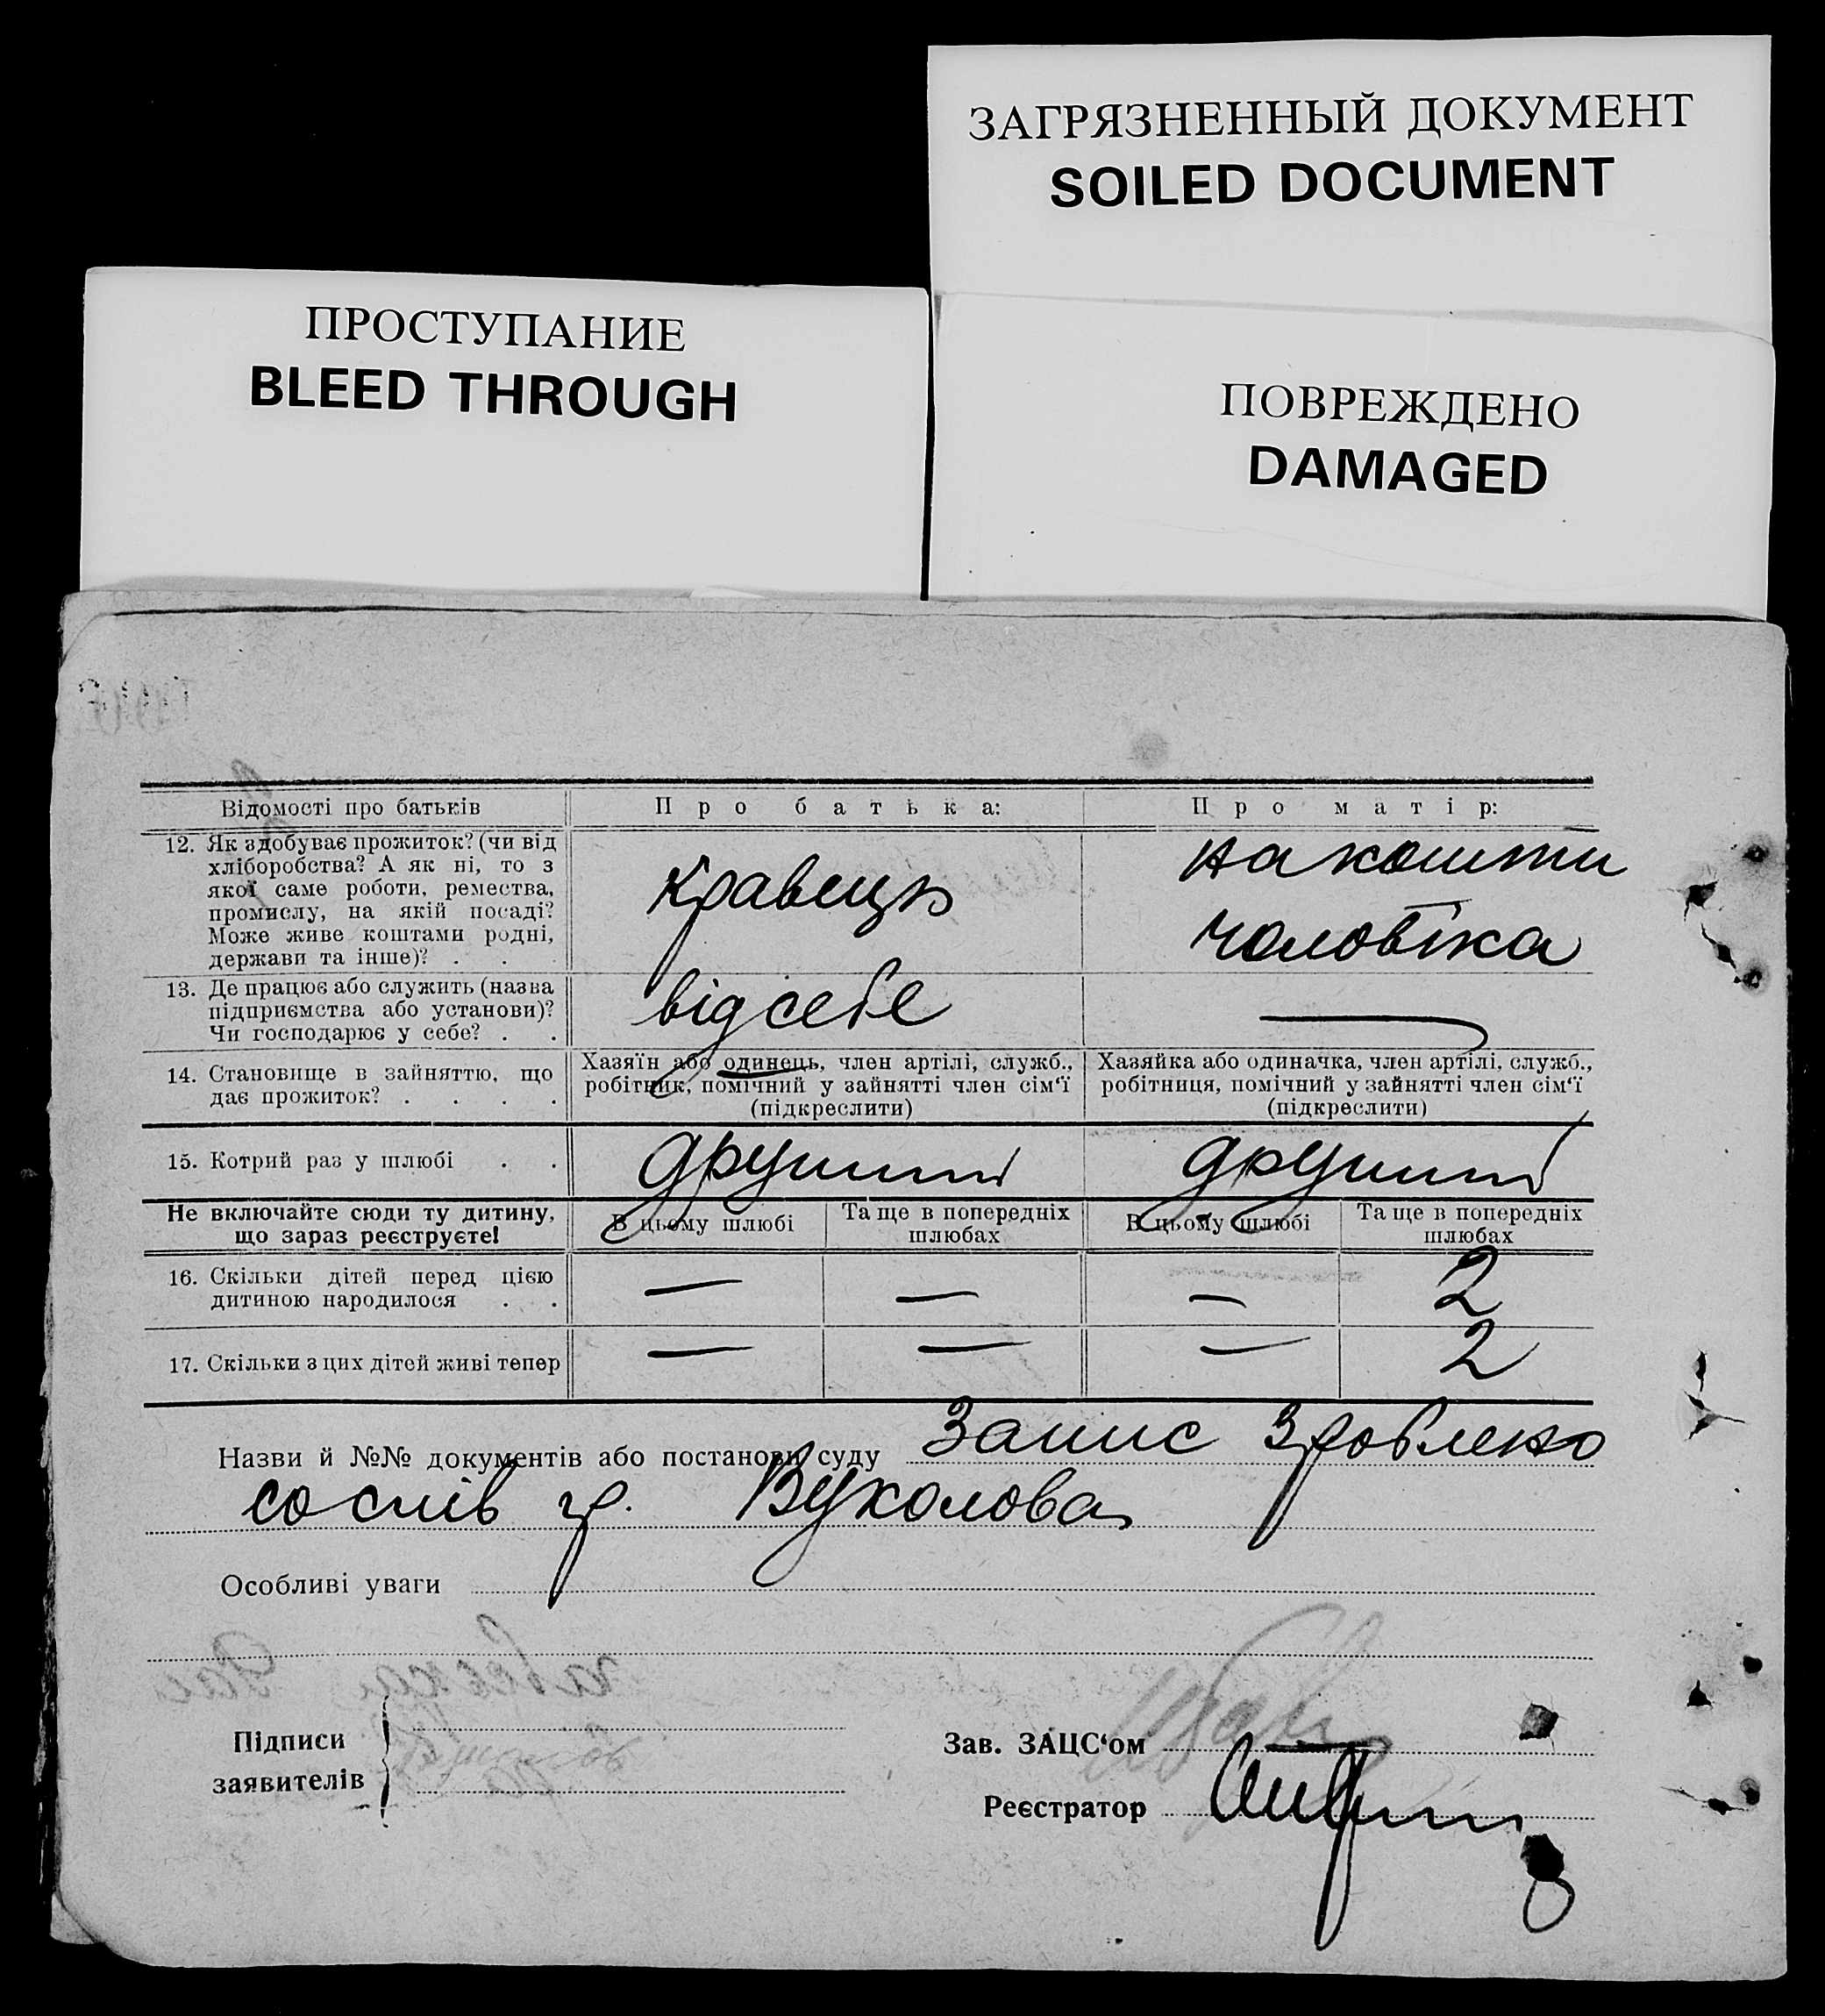 ЗАГРЯЗНЕННЫЙ ДОКУМЕНТ
SOILED DOCUMENT
ПРОСТУПАНИЕ
BLEED THROUGH
ПОВРЕЖДЕНО
DAMAGED
Відомості про батьків
Про батька:
Про матір:
12. Як здобуває прожиток? (чи від
хліборобства? А як ні, то з
якої саме роботи, ремества,
промислу, на якій посаді?
Може живе коштами родні,
держави та інше)? . .
кравець
на кошти
чоловіка
13. Де працює або служить (назва
підприємства або установи)?
Чи господарює у себе? . .
від себе
—
14. Становище в зайняттю, що
дає прожиток? . . . .
Хазяїн або одинець, член артілі, служб.,
робітник, помічний у зайнятті член сім'ї
(підкреслити)
Хазяйка або одиначка, член артілі, служб.,
робітниця, помічний у зайнятті член сім'ї
(підкреслити)
15. Котрий раз у шлюбі . .
другий
другий
Не включайте сюди ту дитину,
що зараз реєструєте!
В цьому шлюбі
Та ще в попередніх
шлюбах
В цьому шлюбі
Та ще в попередніх
шлюбах
16. Скільки дітей перед цією
дитиною народилося . .
— — — 2
17. Скільки з цих дітей живі тепер
— — — 2
Назви й №№ документів або постанови суду Запис зроблено
со слів гр. Вуколова
Особливі уваги
Підписи
заявителів
Зав. ЗАЦС'ом
Реєстратор